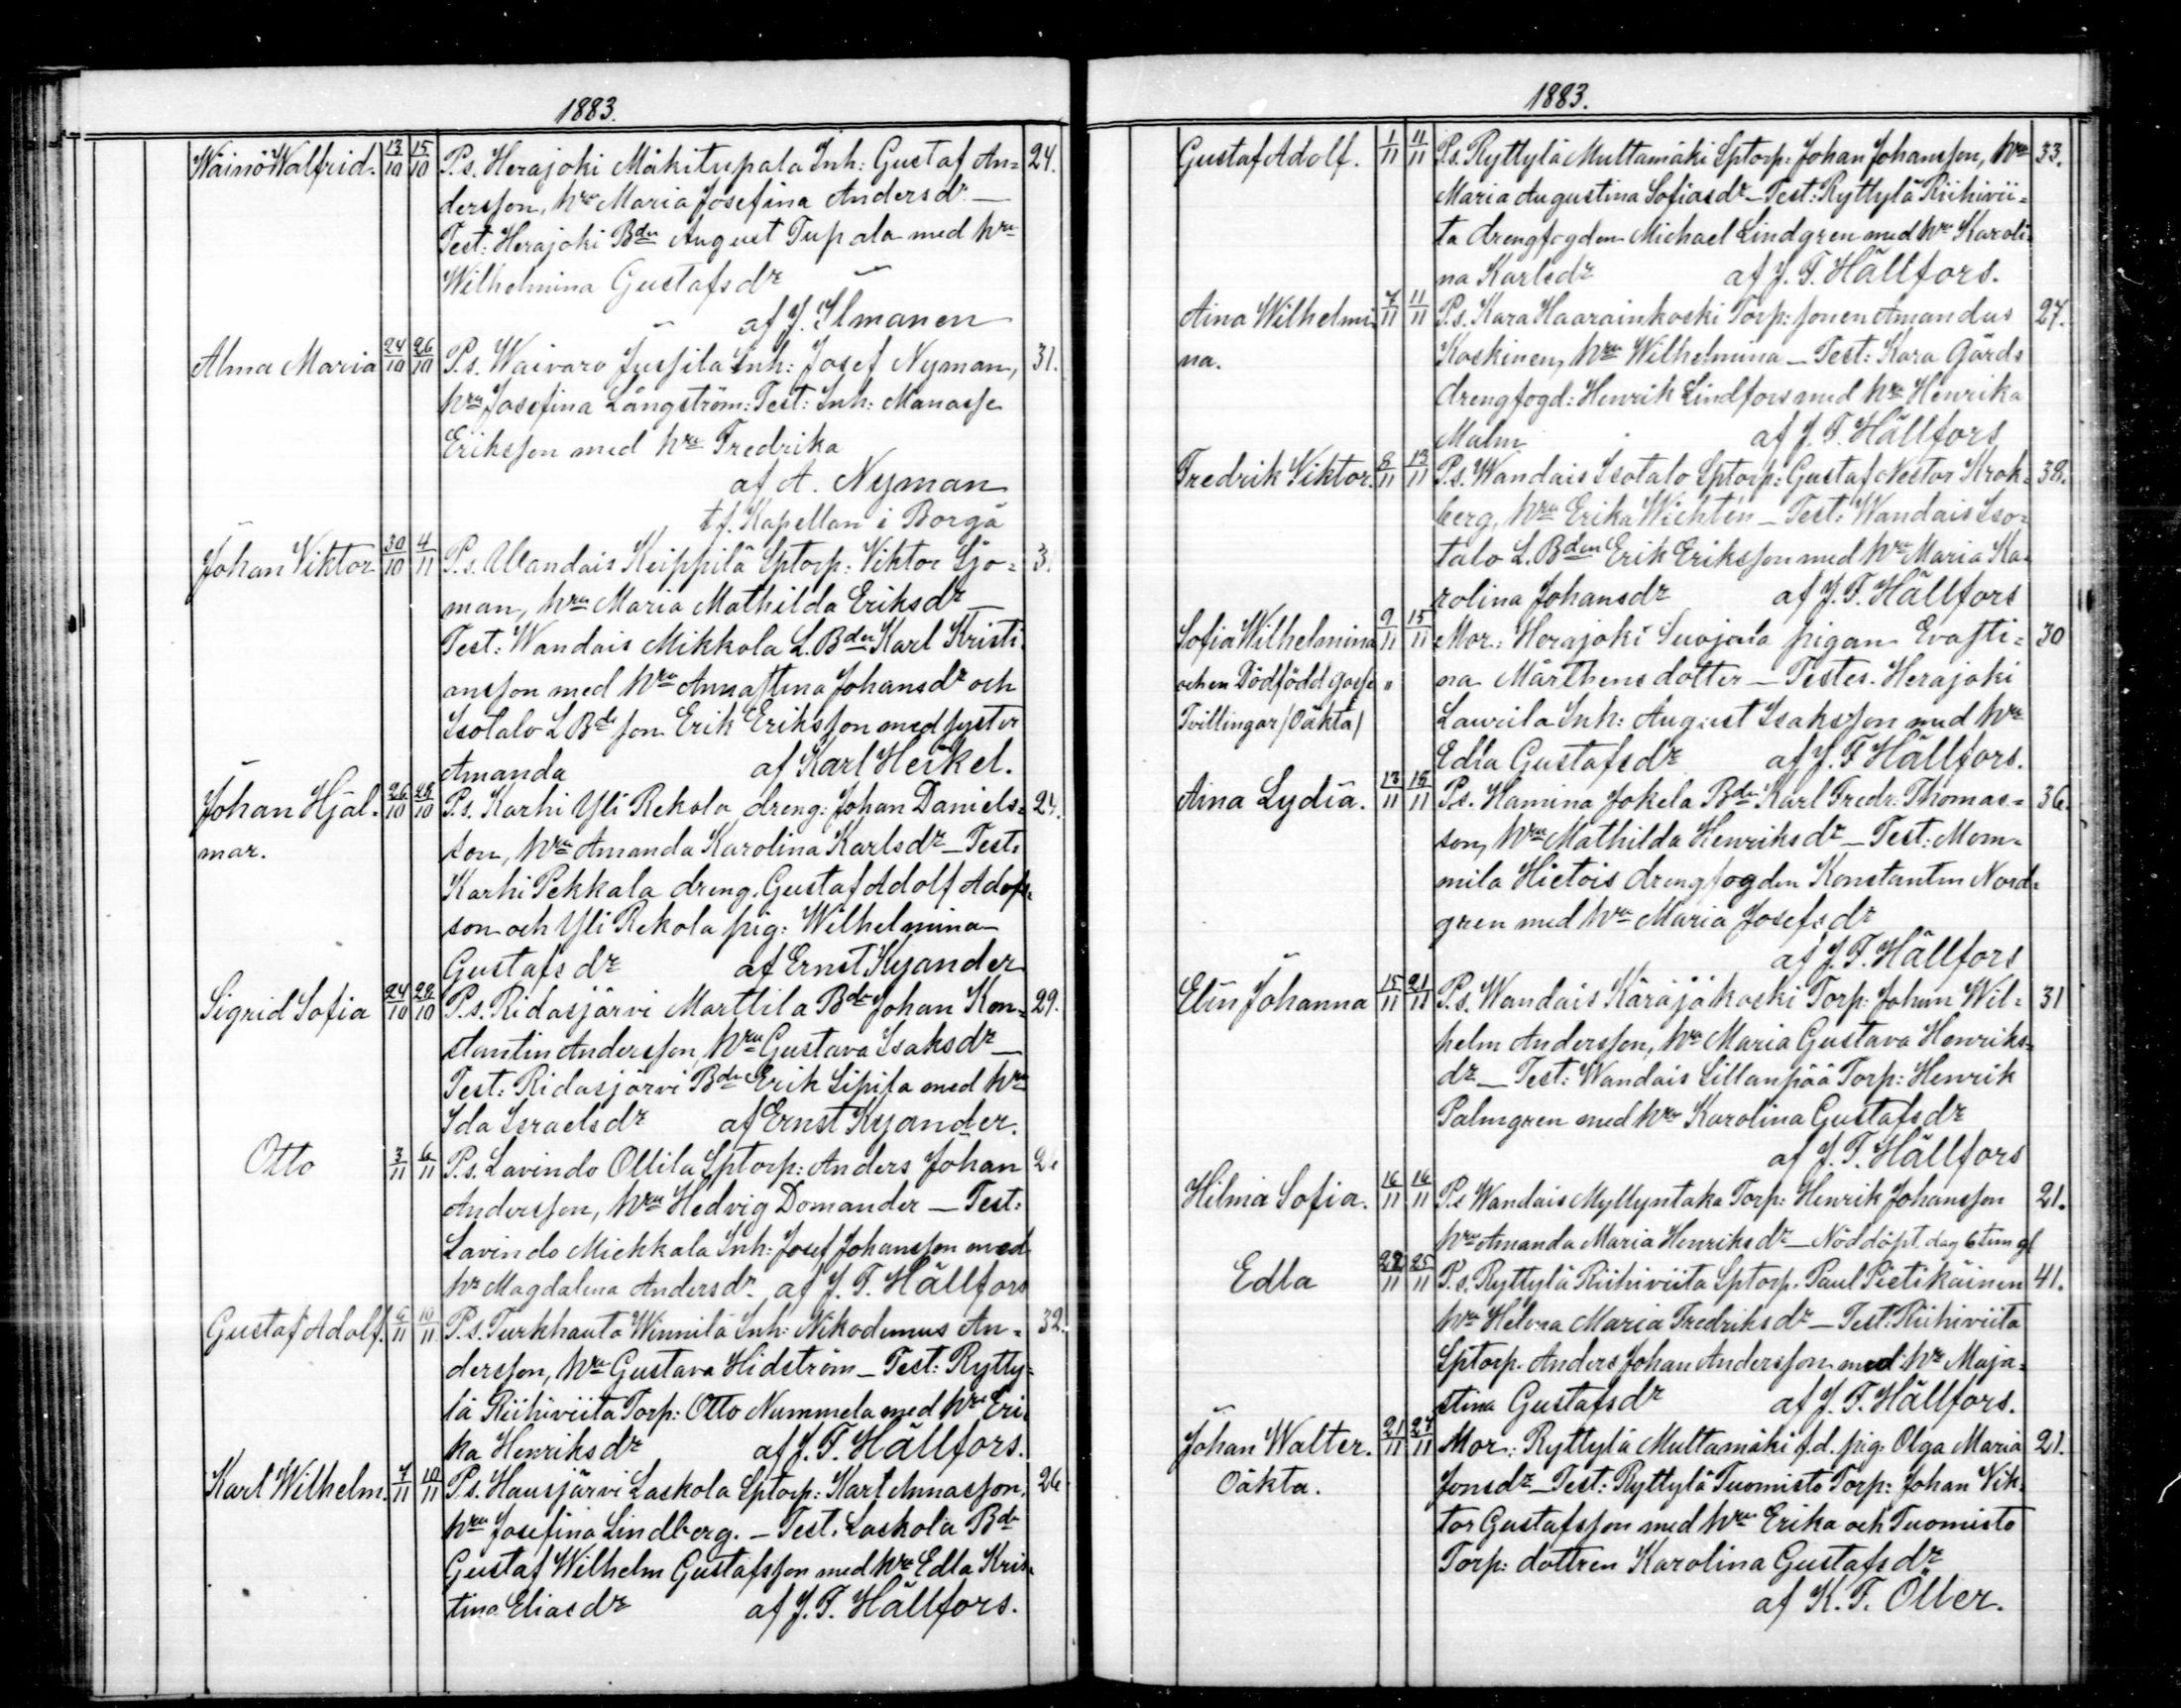 1883.
Wäinö Walfrid. 13/10 15/10 P.s. Herajoki Mäkitupala Inh: Gustaf An= 24.
dersson, hru Maria Josefina Andersdr —
Test: Herajoki Bdn August Tupala med hru
Wilhelmina Gustafsdr
af J. Ilmanen
Alma Maria 24/10 26/10 P.s. Waivaro Jussila Inh: Josef Nyman, 31.
hru Josefina Långström: Test: Inh: Manasse
Eriksson med hru Fredrika
af A. Nyman
t.f. Kapellan i Borgå
Johan Viktor 30/10 4/11 P.s. Wandais Keippilä Sptorp: Viktor Sjö= 31
man, hru Maria Mathilda Eriksdr —
Test: Wandais Mikkola L. Bdn Karl Kristi
ansson med hru Annastina Johansdr och
Isotalo L Bde son Erik Eriksson med syster
Amanda af Karl Heikel.
Johan Hjal- 26/10 28/10 P.s. Karhi Yli Rekola dreng: Johan Daniels= 24.
mar. son, hru Amanda Karolina Karlsdr — Test:
Karhi Pekkala dreng. Gustaf Adolf Adolfs=
son och Yli Rekola pig: Wilhelmina
Gustafsdr af Ernst Kyander
Sigrid Sofia 24/10 28/10 P.s. Ridasjärvi Marttila Bdn Johan Kon= 29.
stantin Andersson, hru Gustava Isaksdr —
Test: Ridasjärvi Bdn Erik Sipila med hru
Ida Israelsdr af Ernst Kyander.
Otto 3/11 6/11 P.s. Lavindo Ollila Sptorp: Anders Johan 26
Andersson, hru Hedvig Domander — Test:
Lavindo Mickkala Inh: Josef Johansson med
hr Magdalena Andersdr af J. F. Hällfors
Gustaf Adolf. 6/11 10/11 P.s. Turkhauta Winnilä Inh: Nikodemus An= 32.
dersson, hru Gustava Hidström — Test: Rytty=
lä Riihiviita Torp: Otto Nummela med hru Eri
ka Henriksdr af J. F. Hällfors.
Karl Wilhelm. 7/11 10/11 P.s. Hausjärvi Laskola Sptorp: Karl Annasson, 26.
hru Josefina Lindberg. — Test. Laskola Bdn
Gustaf Wilhelm Gustafsson med hru Edla Kris=
tina Eliasdr af J. F. Hällfors.
1883.
Gustaf Adolf. 1/11 11/11 P.s. Ryttylä Multamäki Sptorp: Johan Johansson, hru 33.
Maria Augustina Sofiasdr — Test: Ryttylä Riihivii=
ta drengfogden Michael Lindgren med hru Karoli=
na Karlsdr af J. F. Hällfors.
Aina Wilhelmi 7/11 11/11 P.s. Kara Haarainkoski Torp: sonen Amandus 27.
na. Koskinen, hru Wilhelmina — Test: Kara Gårds
drengfogd: Henrik Lindfors med hru Henrika
Malm af J. F. Hällfors
Fredrik Viktor. 8/11 13/11 P.s. Wandais Isotalo Sptorp: Gustaf Nestor Krok= 38.
berg, hru Erika Wichtén — Test: Wandais Iso=
talo L. Bden Erik Eriksson med hru Maria Ka=
rolina Johansdr af J. F. Hällfors
Sofia Wilhelmina 9/11 15/11 Mor: Herajoki Suojala pigan Evasti= 30
och en Dödfödd gosse " na Mårthensdotter — Testes. Herajoki
Tvillingar /Oäkta/ Laurila Inh: August Isaksson med hru
Edla Gustafsdr af J. F Hällfors.
Aina Lydia. 13/11 18/11 P.s. Hamina Jokela Bdn Karl Fredr: Thomas= 36.
son, hru Mathilda Henriksdr — Test: Mom=
mila Hietois drengfogden Konstantin Nord=
gren med hru Maria Josefsdr
af J. F. Hällfors
Elin Johanna 15/11 21/11 P.s. Wandais Käräjäkoski Torp: Johan Wil= 31
helm Andersson, hru Maria Gustava Henriks=
dr — Test: Wandais Sillanpää Torp: Henrik
Palmgren med hru Karolina Gustafsdr
af J. F. Hällfors
Hilma Sofia. 16/11 16/11 P.s Wandais Myllyntaka Torp: Henrik Johansson 21.
hru Amanda Maria Henriksdr — Nöddöpt. dag 6 tim gl
Edla 22/11 25/11 P.s. Ryttylä Riihiviita Sptorp. Paul Pietikäinen 41.
hru Helena Maria Fredriksdr — Test: Riihiviita
Sptorp. Anders Johan Andersson med hr Maja=
stina Gustafsdr af J. F. Hällfors.
Johan Walter. 21/11 27/11 Mor: Ryttylä Multamäki f.d. pig: Olga Maria 21.
Oäkta. Jonsdr — Test: Ryttylä Tuomisto Torp: Johan Vik=
tor Gustafsson med hru Erika och Tuomisto
Torp: dottren Karolina Gustafsdr
af K. F. Öller.